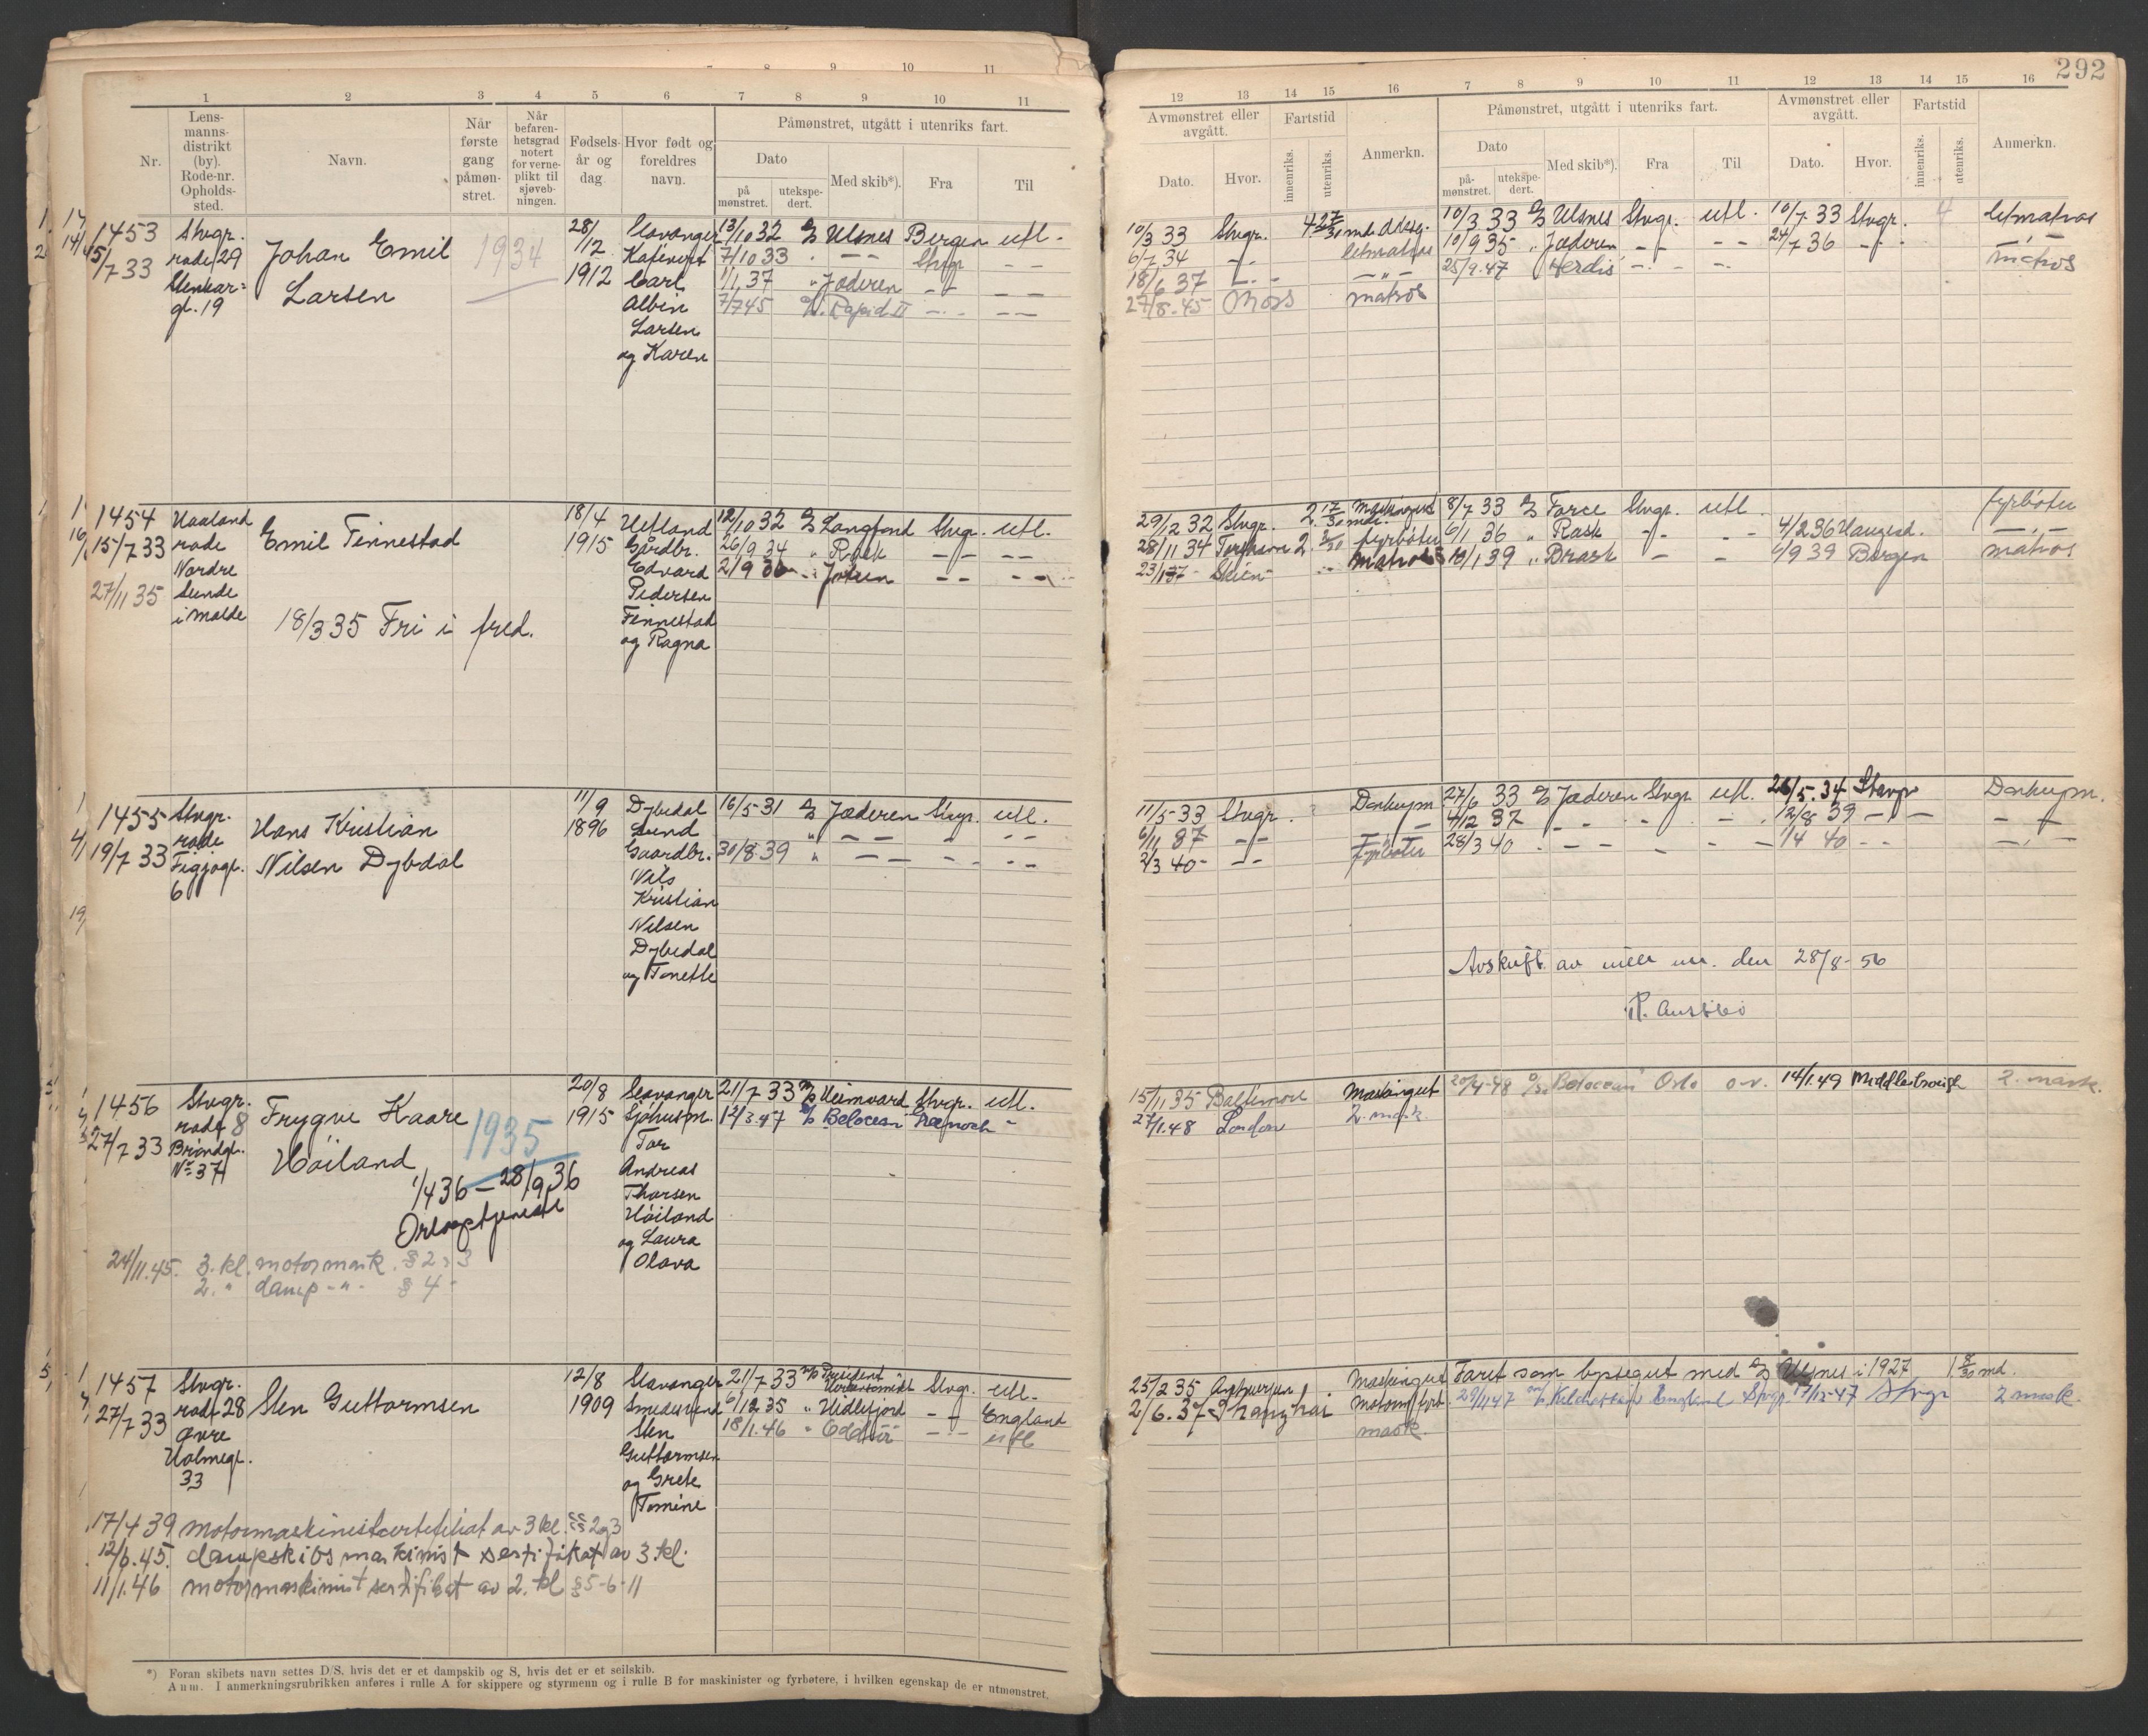 292
1 2 3 4 5 6 7 8 9 10 11
Nr.
Lens-
manns-
distrikt
(by).
Rode-nr.
Opholds-
sted.
Navn.
Når
første
gang
påmøn-
stret.
Når
befaren-
hetsgrad
notert
for verne-
plikt til
sjøveb-
ningen.
Fødsels-
år og
dag
Hvor født og
foreldres
navn.
Påmønstret, utgått i utenriks fart.
Dato
på
mønstret.
utekspe-
dert.
Med skib*).
Fra
Til
12 13 14 15 16 7 8 9 10 11 12 13 14 15 16
Avmønstret eller
avgått.
Dato.
Hvor.
Fartstid
innenriks.
utenriks.
Anmerkn.
Påmønstret, utgått i utenriks fart.
Dato
på-
mønstret.
utekspe-
dert.
Med skib*).
Fra
Til
Avmønstret eller
avgått.
Dato.
Hvor.
Fartstid
innenriks.
utenriks.
Anmerkn.
1453
15/7 33
Stvgr.
rode 29
Stenkar=
gt. 19
Johan Emil
Larsen
1934
28/
12
1912
Stavanger
Carl
Albin
Larsen
og Karen
13/10 32 Ulsnes Bergen utl.
7/10 33 " — — Stvgr — —
11/1 37 " Jæderen — — — —
7/7 45 Rapid II — — — —
10/3 33 Stvgr. 4 27/30 mdr.
6/7 34 — — letmatros
18/6 37 — — — " —
27/8. 45 Moss matros
10/3 33 Ulsnes Stvgr. utl. 10/7 33 Stvgr. 4 letmatros
10/9 35 " Jæderen — — — — 24/7 36 — — — " —
25/9. 47 Herdis — — matros
1454
15/7 33
27/11 35
Haaland
rode
Nordre
Sunde
i Malde
Emil Finnestad
18/3 35 Fri i fred.
18/4
1915
Hetland
Gårdbr.
Edvard
Pedersen
Finnestad
og Ragna
12/10 32 Langfond Stvgr. utl.
26/9 34 " Rask — — — —
2/9 36 " — — — —
29/12 32 Stvgr. 2 17/30 mdr. Maskingut
28/11 34 2 fyrbøter
23/1 37 Skien matros
8/7 33 Force Stvgr. utl. fyrbøter
6/1 36 " Rask — — — — 4/2 36 Haugesd. — " —
10/1 39 " Brask — — 6/9 39 Bergen matros
1455
19/7 33
Stvgr.
rode
Figjogt.
6
Hans Kristian
Nilsen Dybdal
11/9
1896
Dybdal
Lund
Gaardbr.
Nils
Kristian
Nilsen
Dybdal
og Tonette
16/5 31 Jæderen Stvgr. utl.
" — — — — —
30/8 39 " — — — — —
11/5 33 Stvgr. Donkeym.
6/11 37 — — —
2/3 40 — — Fyrbøter
27/6 33 Jæderen Stvgr. utl. 26/5. 34 Stavgr Donkeym.
4/12 37 — — — — 12/8 39 — — — " —
28/3 40 — — — — 1/4 40 — — — " —
Avskrift av rulle nr. den 28/8 - 56
1456
27/7 33
Stvgr.
rode 8
Brøndgt.
No 37
Trygve Kaare
Høiland
1935
1/4 36 — 28/9 36
Orlogstjeneste
24/11. 45. 3. kl. motormask. § 2, 3
2. " damp - " - § 4 -
20/8
1915
Stavanger
Sjøhusm.
Tor
Andreas
Thorsen
Høiland
og Laura
Olava
21/7 33 Heimvard Stvgr. utl.
12/3. 47 Belocean
15/11 35 Baltimore Maskingut
27/1. 48 London 2. mask.
20/4 - 48 Belocean Oslo o-v. 14/1. 49 Middlesbrough 2. mask.
1457
27/7 33
Stvgr.
rode 28
Øvre
Holmegt.
33
Sten Guttormsen
12/8
1909
Stavanger
Smedsvend
Sten
Guttormsen
og Grete
Tomine
21/7 33 President Stvgr. utl.
6/12 35 " Hidlefjord — — England
18/1. 46 " — — utl
25/2 35 Antwerpen Maskingut
2/6. 37 Shanghai Motorm / fyrb.
mask.
Faret som byssegut med Ulsnes i 1927 1 8/30 md.
29/11 47 England Stvgr. 17/12 - 47 Stvgr 2 mask.
17/4 39 motormaskinistcertifikat av 3 kl. §§ 2 og 3
12/6. 45. dampskibsmaskinist sertifikat av 3 kl.
11/1. 46 motormaskinist sertifikat av 2. kl § 5 - 6 - 11
*) Foran skibets navn settes D/S, hvis det er et dampskib og S, hvis det er et seilskib.
Anm. I anmerkningsrubrikken anføres i rulle A for skippere og styrmenn og i rulle B for maskinister og fyrbøtere, i hvilken egenskap de er utmønstret.